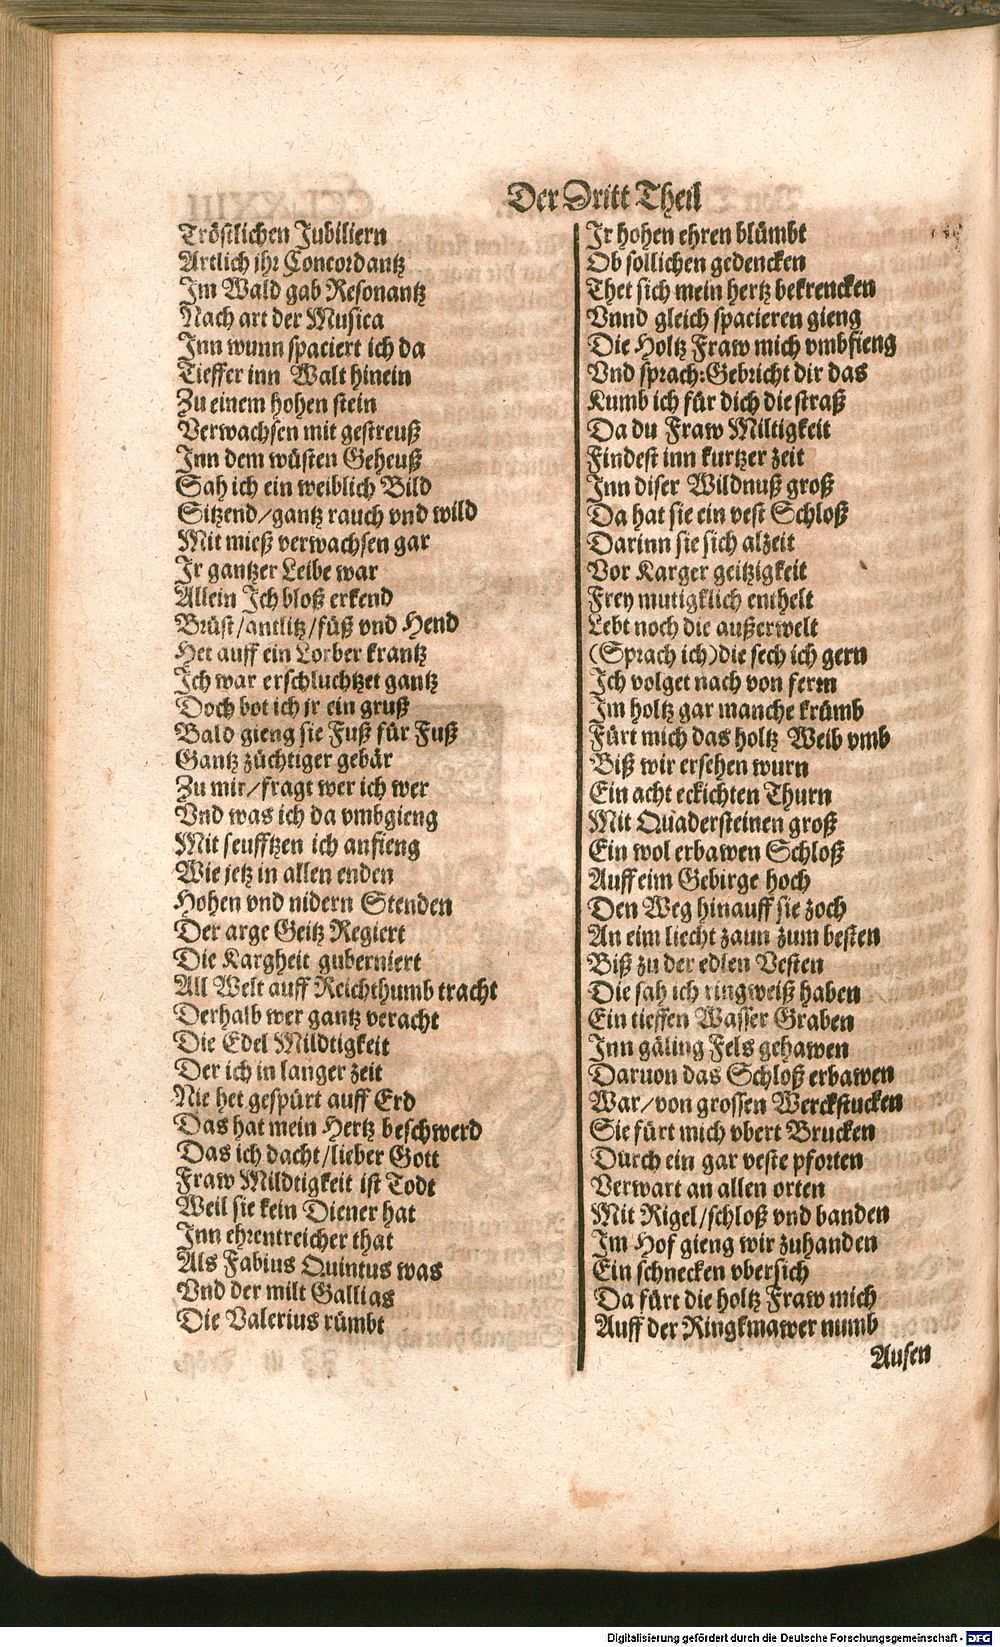 Der Dritt Theil
Tröstlichen Jubiliern
Artlich ihr Concordantz
Im Wald gab Resonantz
Nach art der Musica
Inn wunn spaciert ich da
Tieffer inn Walt hinein
Zu einem hohen stein
Verwachsen mit gestreuß
Inn dem wüsten Geheuß
Sah ich ein weiblich Bild
Sitzend/gantz rauch vnd wild
Mit mieß verwachsen gar
Ir gantzer Leibe war
Allein Ich bloß erkend
Brüst/antlitz/füß vnd Hend
Het auff ein Lorber krantz
Ich war erschluchtzet gantz
Doch bot ich jr ein gruß
Bald gieng sie Fuß für Fuß
Gantz züchtiger gebär
Zu mir/fragt wer ich wer
Vnd was ich da vmbgieng
Mit seufftzen ich anfieng
Wie jetz in allen enden
Hohen vnd nidern Stenden
Der arge Geitz Regiert
Die Kargheit guberniert
All Welt auff Reichthumb tracht
Derhalb wer gantz veracht
Die Edel Mildtigkeit
Der ich in langer zeit
Nie het gespürt auff Erd
Das hat mein Hertz beschwerd
Das ich dacht/lieber Gott
Fraw Mildtigkeit ist Todt
Weil sie kein Diener hat
Inn ehrentreicher that
Als Fabius Quintus was
Vnd der milt Gallias
Die Valerius rümbt
Ir hohen ehren blümbt
Ob sollichen gedencken
Thet sich mein hertz bekrencken
Vnnd gleich spacieren gieng
Die Holtz Fraw mich vmbfieng
Vnd sprach:Gebricht dir das
Kumb ich für dich die straß
Da du Fraw Miltigkeit
Findest inn kurtzer zeit
Inn diser Wildnuß groß
Da hat sie ein vest Schloß
Darinn sie sich alzeit
Vor Karger geitzigkeit
Frey mutigklich enthelt
Lebt noch die außerwelt
(Sprach ich)die sech ich gern
Ich volget nach von ferrn
Im holtz gar manche krümb
Fürt mich das holtz Weib vmb
Biß wir ersehen wurn
Ein acht eckichten Thurn
Mit Quadersteinen groß
Ein wol erbawen Schloß
Auff eim Gebirge hoch
Den Weg hinauff sie zoch
An eim liecht zaun zum besten
Biß zu der edlen Vesten
Die sah ich ringweiß haben
Ein tieffen Wasser Graben
Inn gäling Fels gehawen
Daruon das Schloß erbawen
War/von grossen Werckstucken
Sie fürt mich vbert Brucken
Durch ein gar veste pforten
Verwart an allen orten
Mit Rigel/schloß vnd banden
Im Hof gieng wir zuhanden
Ein schnecken vbersich
Da fürt die holtz Fraw mich
Auff der Ringkmawer numb
Ausen
Digitalisierung gefördert durch die Deutsche Forschungsgemeinschaft - DFG